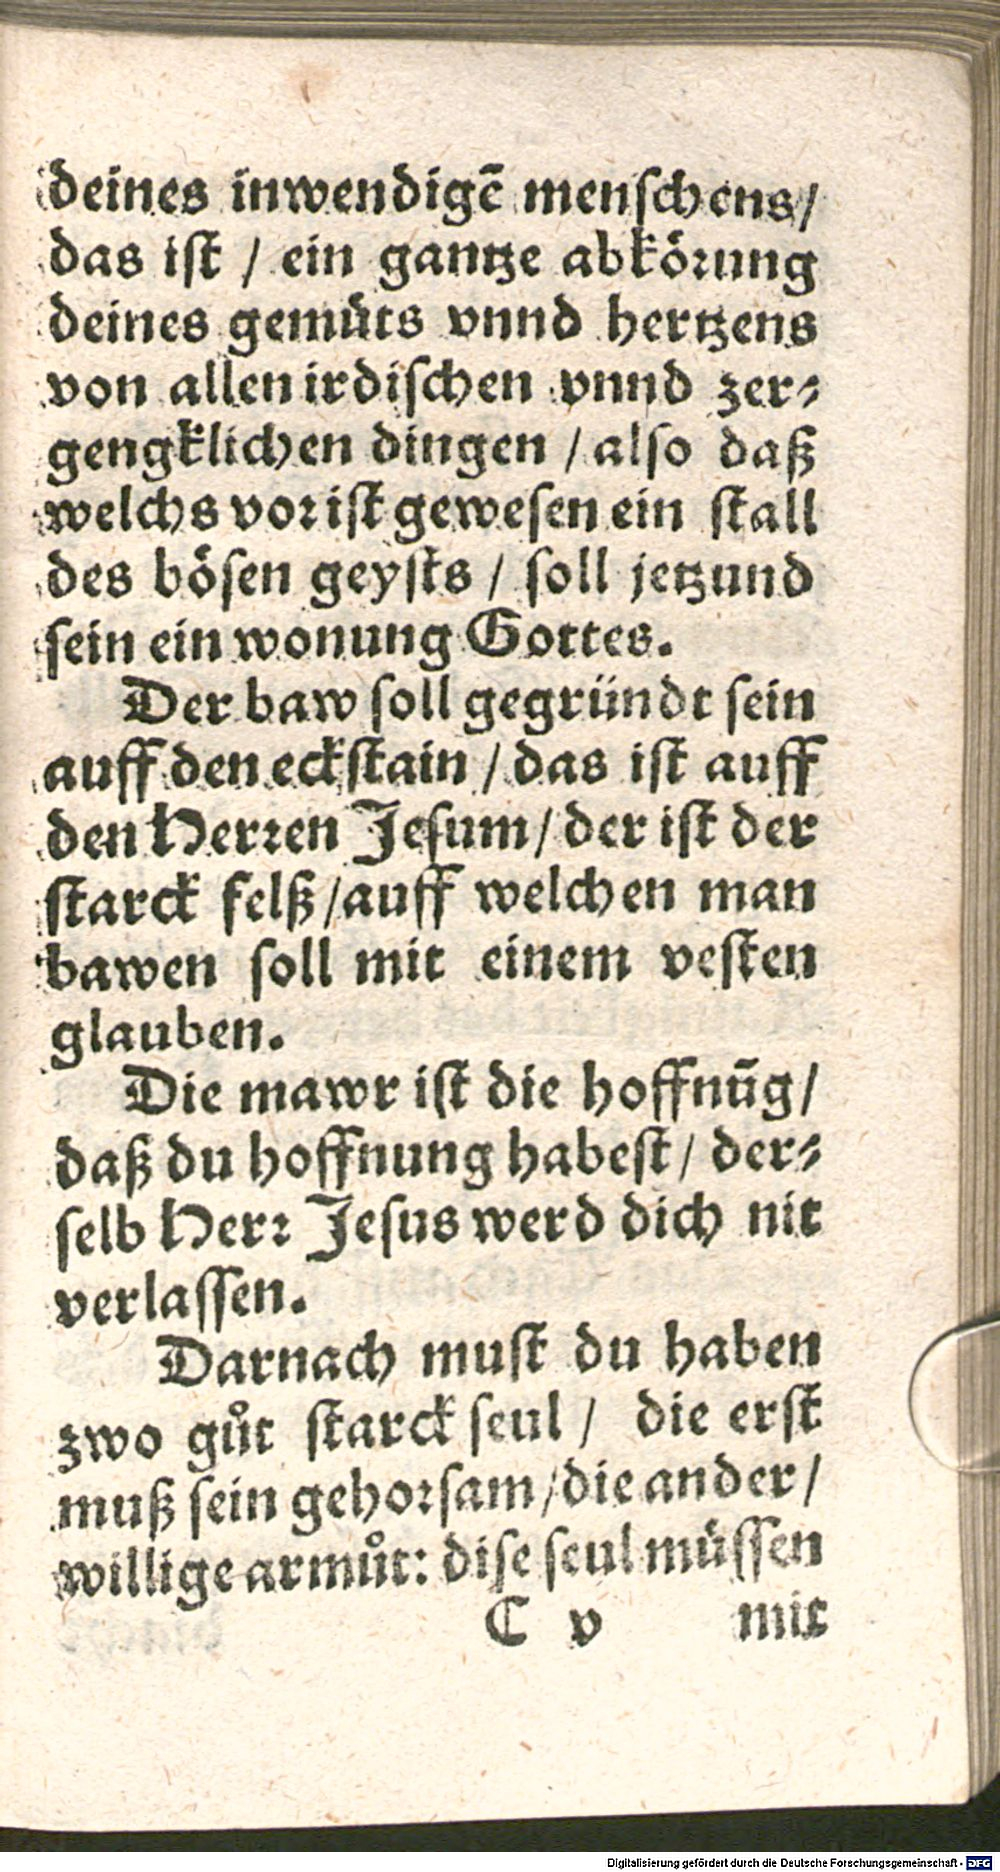 deines inwendigẽ menschens/
das ist / ein gantze abkörung
deines gemuͤts vnnd hertzens
von allen irdischen vnnd zer⸗
gengklichen dingen / also daß
welchs vor ist gewesen ein stall
des bösen geysts / soll jetzund
sein ein wonung Gottes.
Der baw soll gegründt sein
auff den eckstain / das ist auff
den Herren Jesum / der ist der
starck felß / auff welchen man
bawen soll mit einem vesten
glauben.
Die mawr ist die hoffnũg /
daß du hoffnung habest / der⸗
selb Herr Jesus werd dich nit
verlassen.
Darnach must du haben
zwo gůt starck seul / die erst
muß sein gehorsam / die ander /
willige armůt: dise seul muͤssen
C v mit
Digitalisierung gefördert durch die Deutsche Forschungsgemeinschaft - DFG